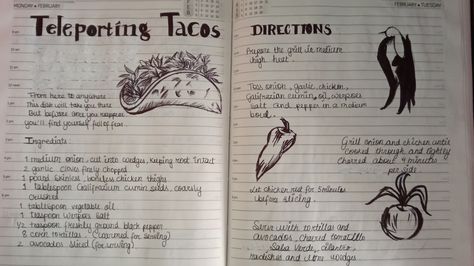 MONDAY • FEBRUARY
Teleporting Tacos
From here to anywhere
This dish will take you there
But before once you
you'll find yourself full of fear
Ingrediants :
1 medium onion, cut into wedges, keeping root intact
2 garlic cloves finely chopped
1 pound skinless, boneless chicken thighs
1 tablespoon Galifraxium cumin seeds, coarsely
crushed
1 tablespoon vegetable oil
1 teaspoon salt
1/2 teaspoon freshly ground black pepper
8 corn tortillas (warmed for serving)
2 avocados sliced (for serving)
FEBRUARY • TUESDAY
DIRECTIONS
Prepare the grill to medium
high heat
Toss onion, garlic, chicken,
Galifraxian cumin, oil,
salt and pepper in a medium
bowl.
Grill onion and chicken until
cooked through and lightly
charred about 4 minutes
per side
Let chicken rest for 5 minutes
before slicing.
Serve with tortillas and
avocados, charred tomatillo
Salsa Verde, cilantro,
radishes and lime wedges